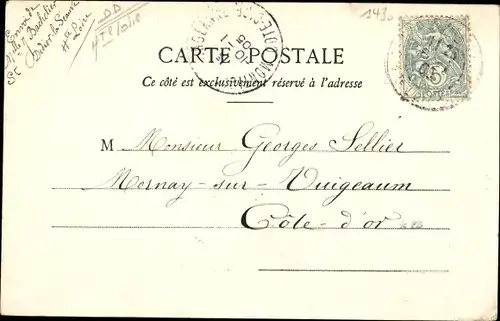 Envoi de
Mlle Bachelier
St Didier-la-Séauve
Hte Loire
DD
Hte Loire
CARTE POSTALE
Ce côté est exclusivement réservé à l'adresse
M Monsieur Georges Sellier
Mornay-sur-Vuigeaum
Côte-d'or